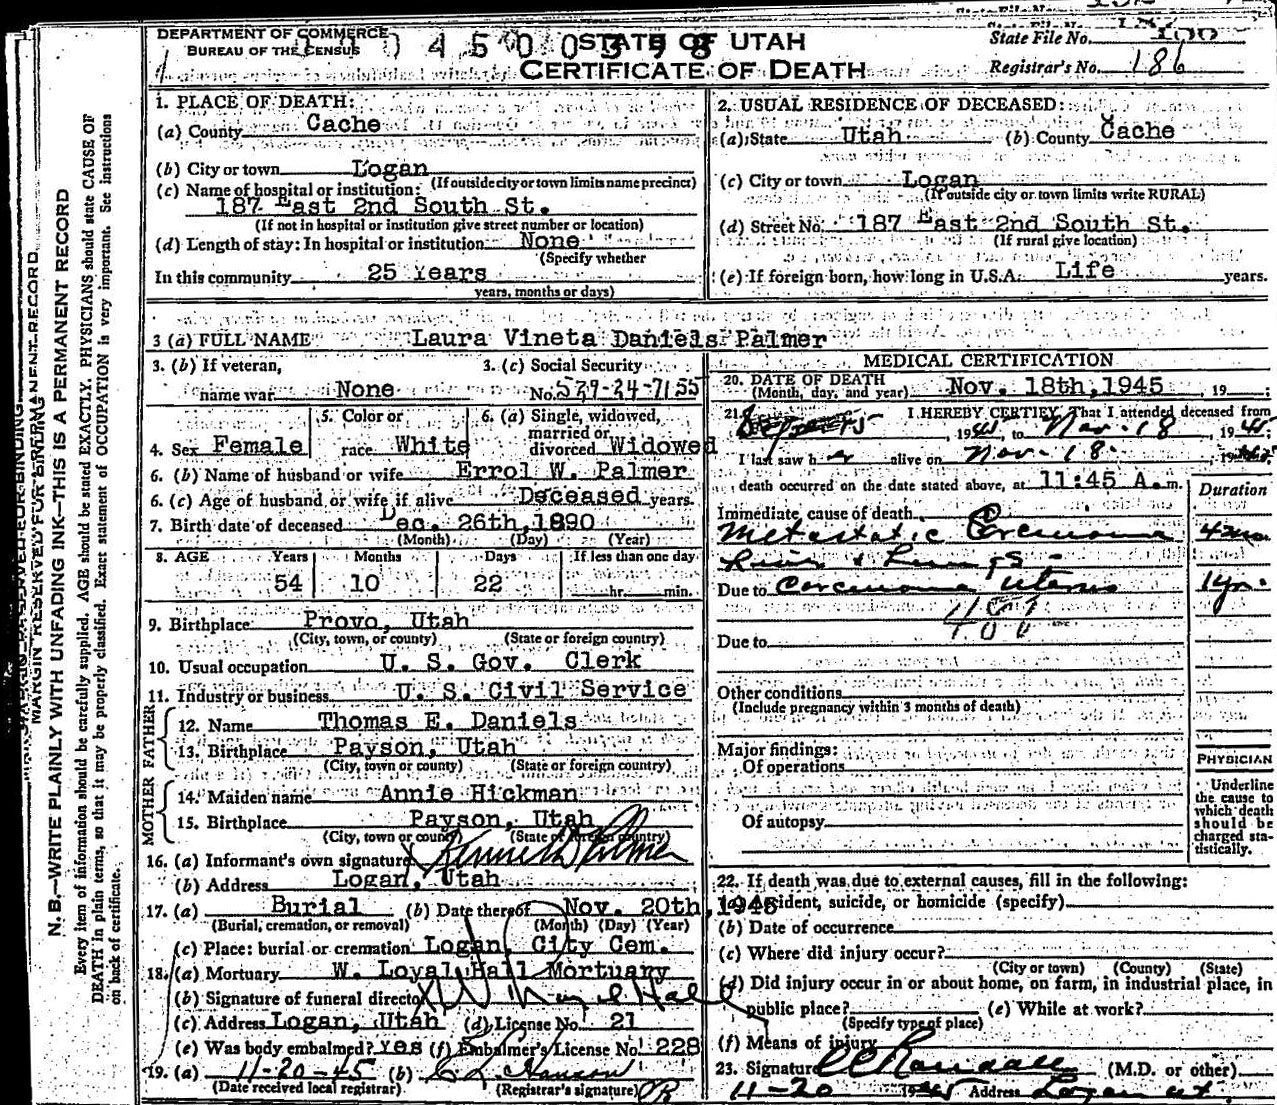 DEPARTMENT OF COMMERCE
BUREAU OF THE CENSUS
STATE OF UTAH
CERTIFICATE OF DEATH
State File No.
Registrar's No. 186
MARGIN RESERVED FOR BINDING
N. B.—WRITE PLAINLY WITH UNFADING INK—THIS IS A PERMANENT RECORD
Every item of information should be carefully supplied. AGE should be stated EXACTLY. PHYSICIANS should state CAUSE OF
DEATH in plain terms, so that it may be properly classified. Exact statement of OCCUPATION is very important. See instructions
on back of certificate.
1. PLACE OF DEATH:
(a) County Cache
(b) City or town Logan
(If outside city or town limits name precinct)
(c) Name of hospital or institution:
187 East 2nd South St.
(If not in hospital or institution give street number or location)
(d) Length of stay: In hospital or institution None
(Specify whether
In this community 25 Years
years, months or days)
2. USUAL RESIDENCE OF DECEASED:
(a) State Utah (b) County Cache
(c) City or town Logan
(If outside city or town limits write RURAL)
(d) Street No. 187 East 2nd South St.
(If rural give location)
(e) If foreign born, how long in U.S.A. Life years.
3 (a) FULL NAME Laura Vineta Daniels Palmer
3. (b) If veteran, name war None
3. (c) Social Security No. 529-24-7155
4. Sex Female
5. Color or race White
6. (a) Single, widowed, married or divorced Widowed
6. (b) Name of husband or wife Errol W. Palmer
6. (c) Age of husband or wife if alive Deceased years.
7. Birth date of deceased Dec. 26th, 1890
(Month) (Day) (Year)
8. AGE Years Months Days If less than one day
54 10 22 hr. min.
9. Birthplace Provo, Utah
(City, town, or county) (State or foreign country)
10. Usual occupation U. S. Gov. Clerk
11. Industry or business U. S. Civil Service
FATHER
12. Name Thomas E. Daniels
13. Birthplace Payson, Utah
(City, town or county) (State or foreign country)
MOTHER
14. Maiden name Annie Hickman
15. Birthplace Payson, Utah
(City, town or county) (State or foreign country)
16. (a) Informant's own signature Kenneth Palmer
(b) Address Logan, Utah
17. (a) Burial (b) Date thereof Nov. 20th, 1945
(Burial, cremation, or removal) (Month) (Day) (Year)
(c) Place: burial or cremation Logan City Cem.
18. (a) Mortuary W. Loyal Hall Mortuary
(b) Signature of funeral director W Loyal Hall
(c) Address Logan, Utah (d) License No. 21
(e) Was body embalmed? Yes (f) Embalmer's License No. 228
19. (a) 11-20-45 (b)
(Date received local registrar) (Registrar's signature)
MEDICAL CERTIFICATION
20. DATE OF DEATH
(Month, day, and year) Nov. 18th, 1945 19
21. I HEREBY CERTIFY, That I attended deceased from
1945, to Nov. 18, 1945;
I last saw her alive on Nov. 18.
death occurred on the date stated above, at 11:45 A.m.
Duration
Immediate cause of death
Metastatic Carcinoma 4 mo.
Liver & Lungs
Due to Carcinoma uterus 1 yr.
Due to
Other conditions
(Include pregnancy within 3 months of death)
Major findings:
Of operations
Of autopsy
PHYSICIAN
Underline
the cause to
which death
should be
charged sta-
tistically.
22. If death was due to external causes, fill in the following:
(a) Accident, suicide, or homicide (specify)
(b) Date of occurrence
(c) Where did injury occur?
(City or town) (County) (State)
(d) Did injury occur in or about home, on farm, in industrial place, in
public place? (e) While at work?
(Specify type of place)
(f) Means of injury
23. Signature Randall (M.D. or other)
11-20 1945 Address Logan ut.